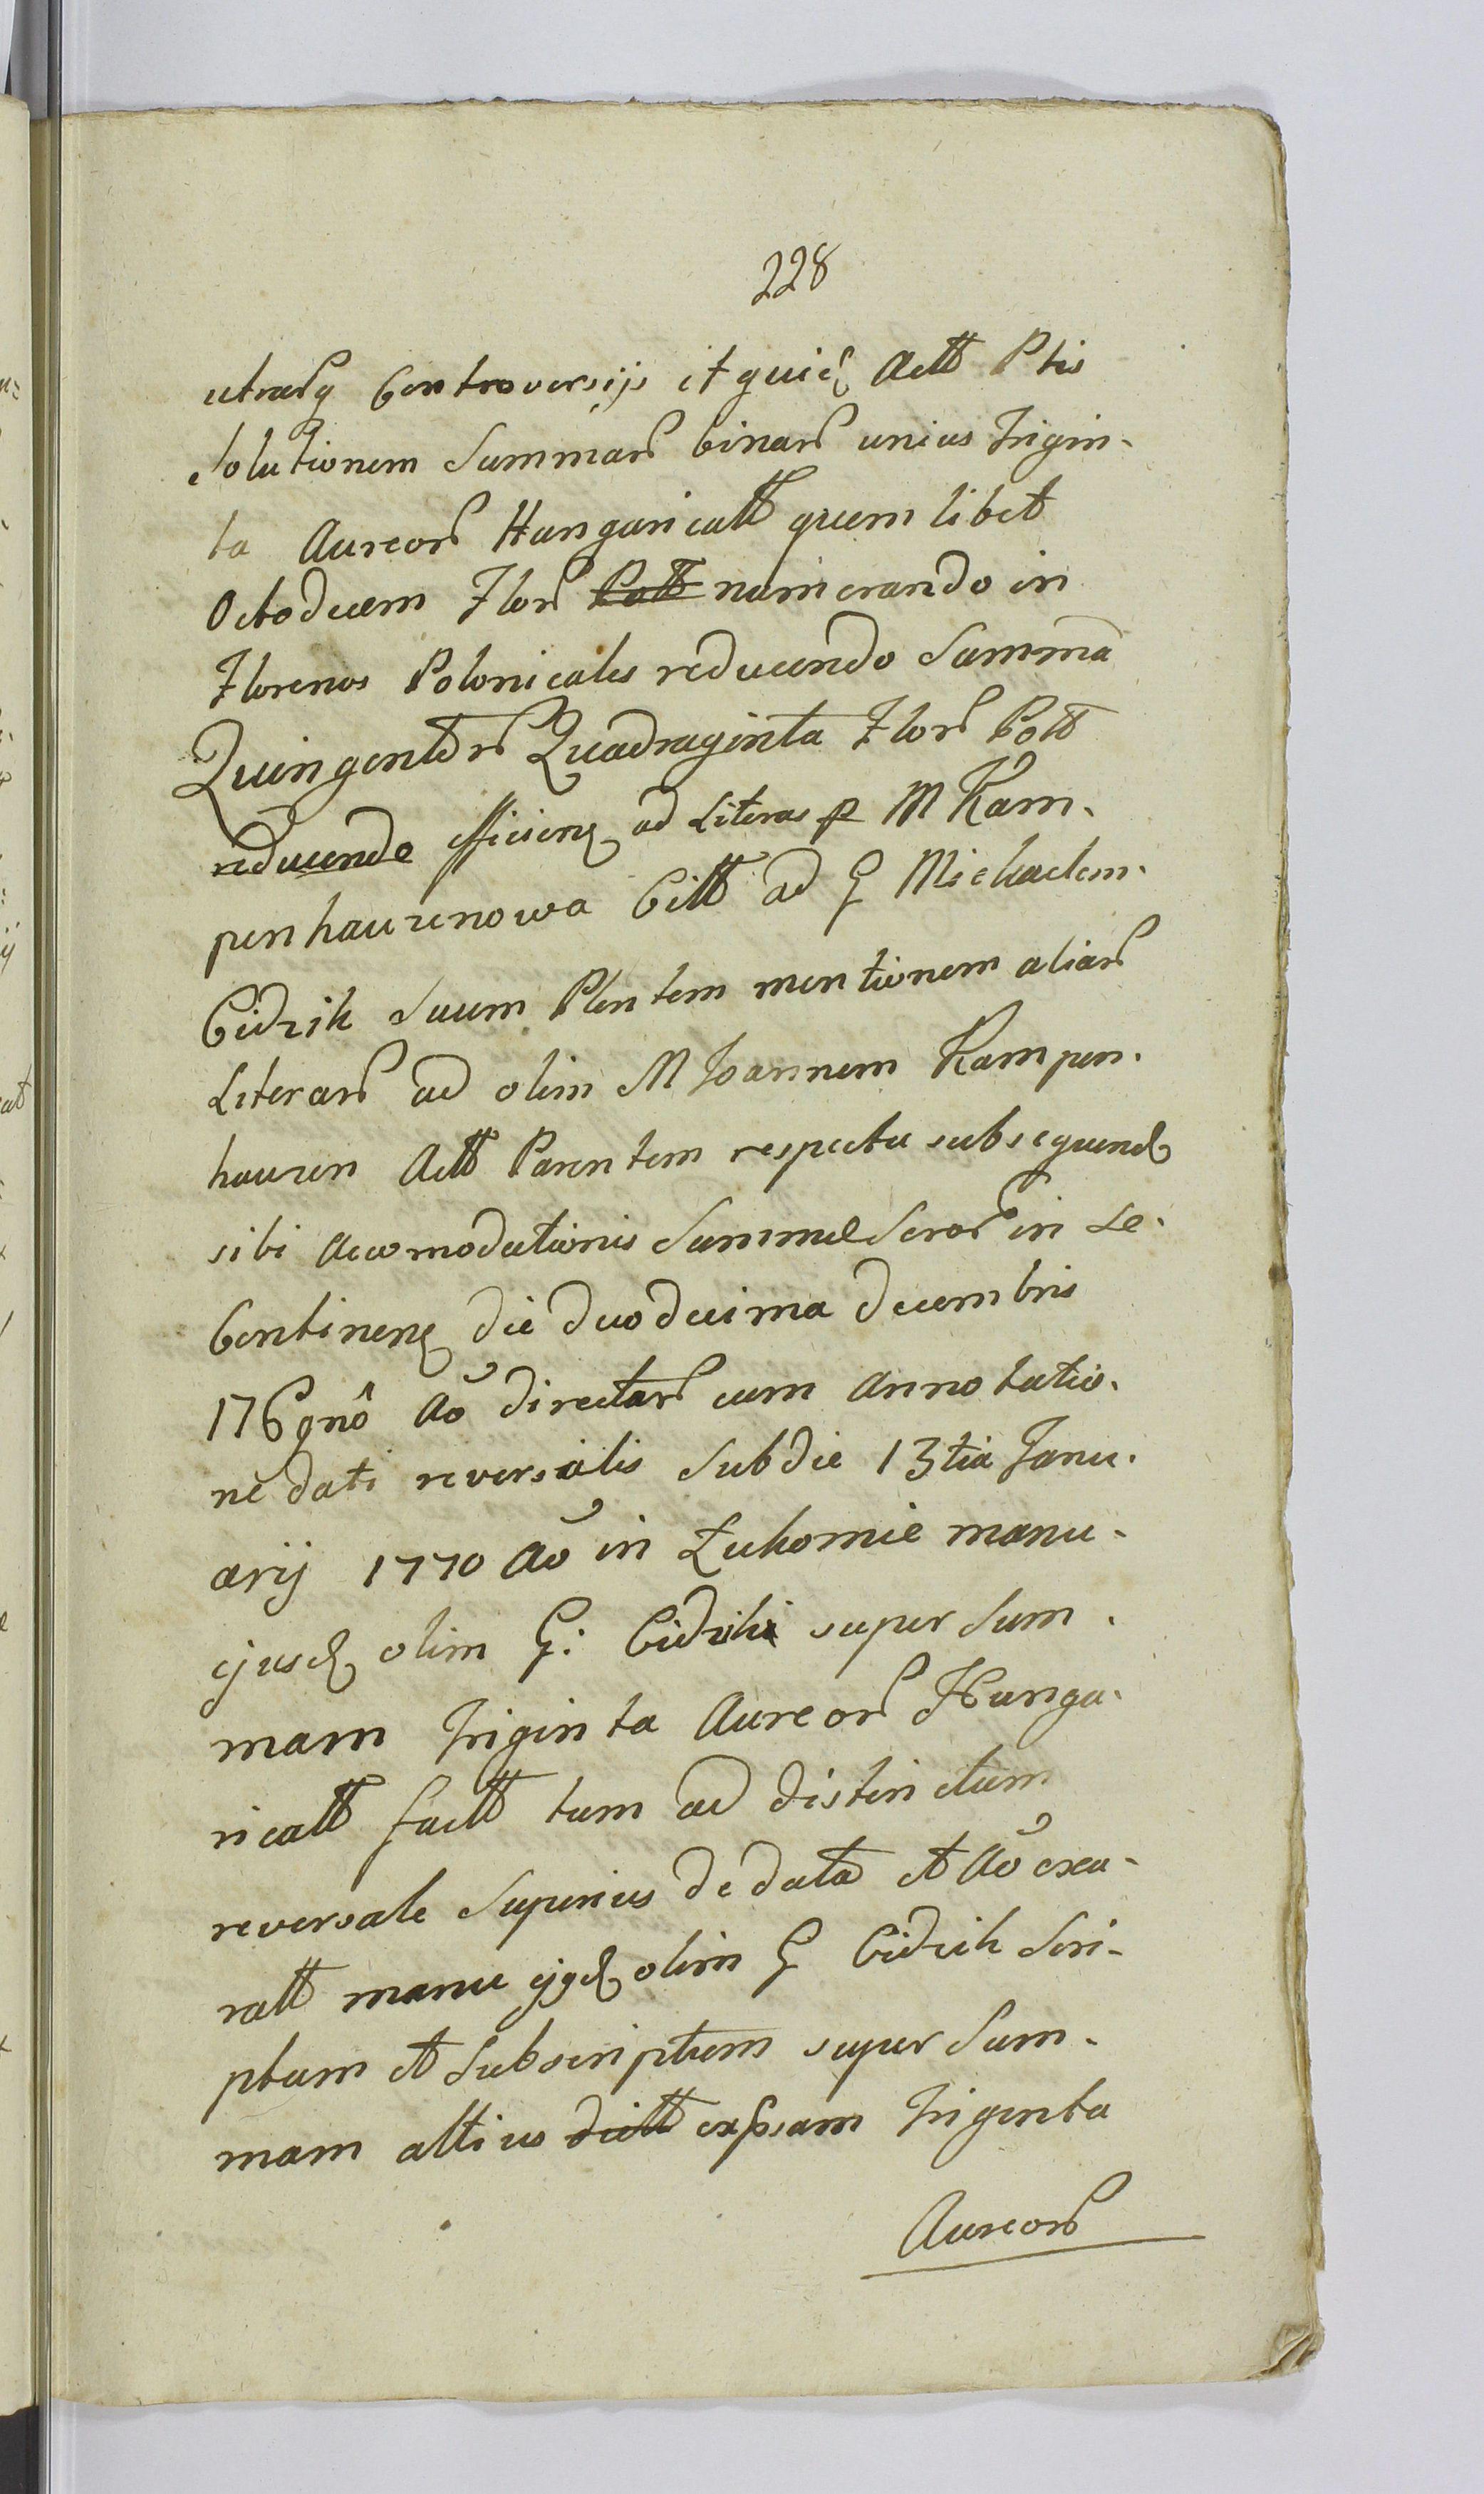 228
utrarq Controversijs et quid Actt Ptis
Solutionem Summar binar unius Trigin-
ta Aureor Hungaricatt quem libet
Octodecem Flor Poll numerando in
Florenos Polonicales reducendo Summa
Quingentor Quadraginta Flor Poll
reducendo efficienq ad Literas p M Kam-
penhauzenowa Citt ad G Michaelem
Cidzik Suum Plentem mentionem aliar
Literar ad olim M Joannem Kampen-
hauzen Actt Parentem respectu subsequend
sibi Accomodationis Summae Scror in se
Continenq die duodecima decembris
1769no Ao directar cum Annotatio-
ne dati reversalis Sub die 13tia Janu-
arij 1770 Ao in Łukomie manu
ejusd olim G: Cidziki super Sum-
mam Triginta Aureor Hunga-
ricatt factt tum ad distinctum
reversale Superius de data et Ao exa-
ratt manu ejqd olim G Cidzik Scri-
ptum et Subscriptum super Sum-
mam altius dictt expssam Triginta
Aureor